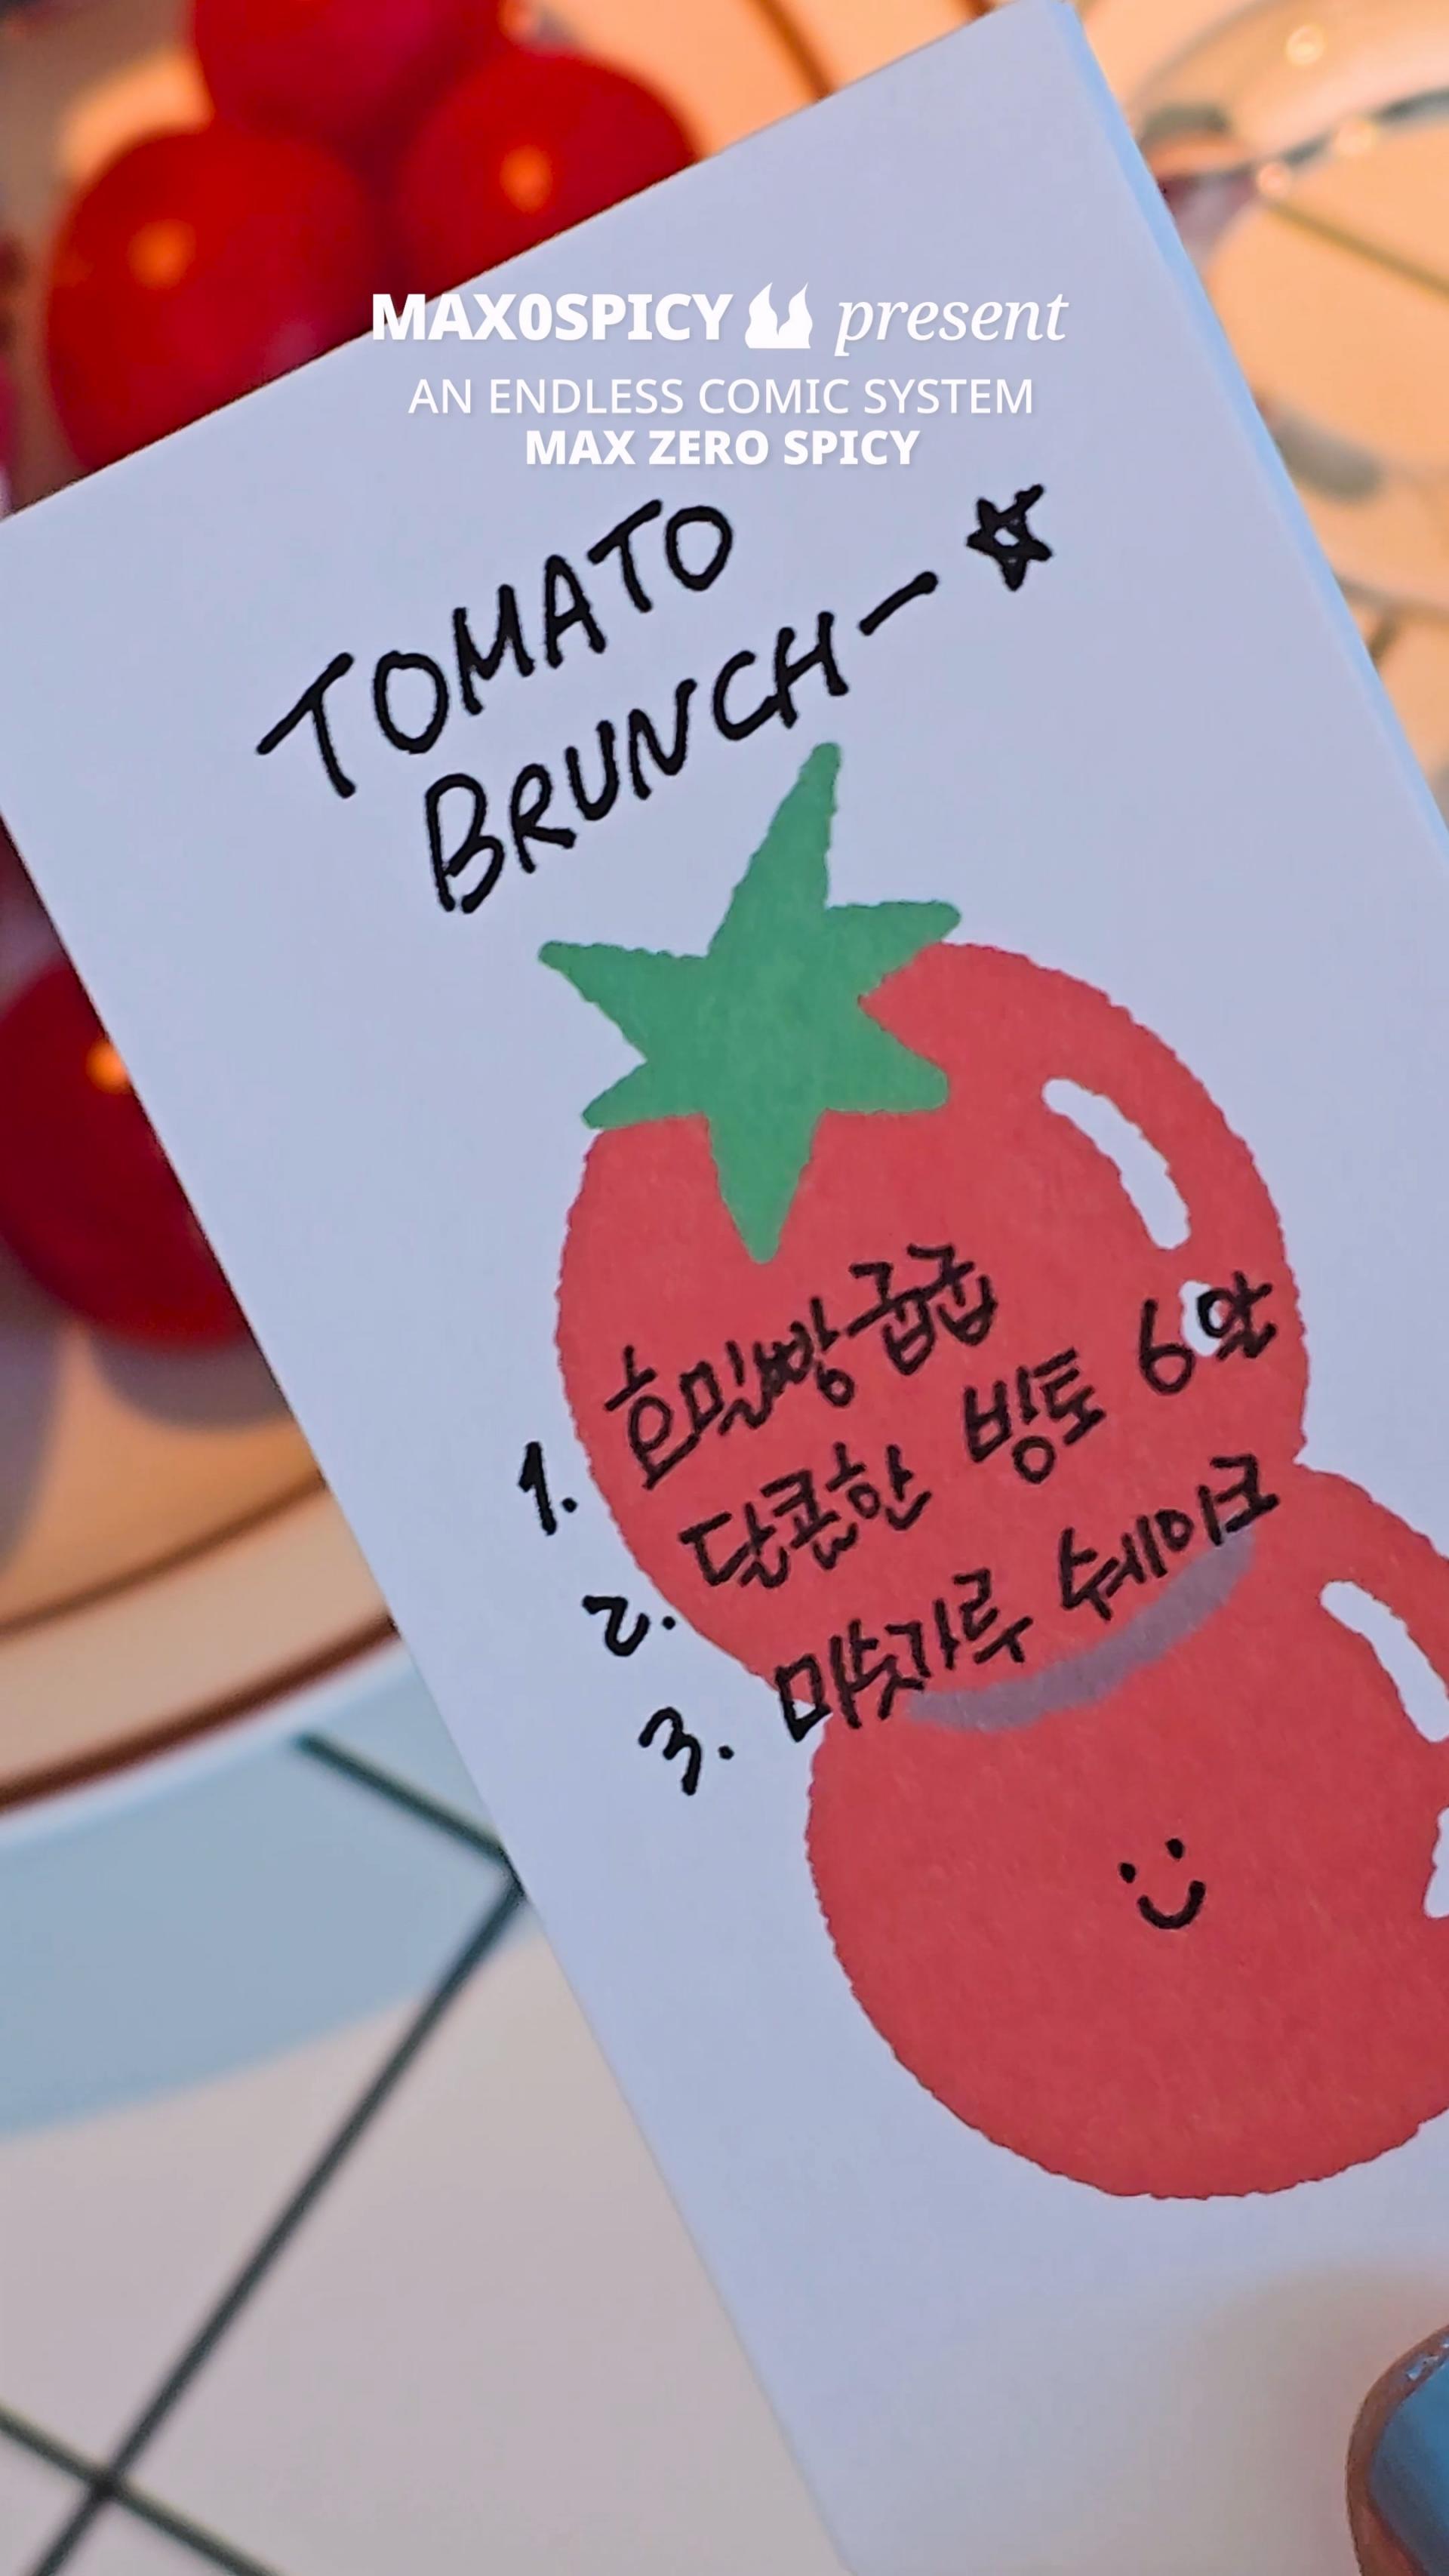 MAX0SPICY present
AN ENDLESS COMIC SYSTEM
MAX ZERO SPICY
TOMATO
BRUNCH - ☆
1. 흐밀빵 굽굽
2. 달콤한 빙토 6알
3. 미숫가루 쉐이크